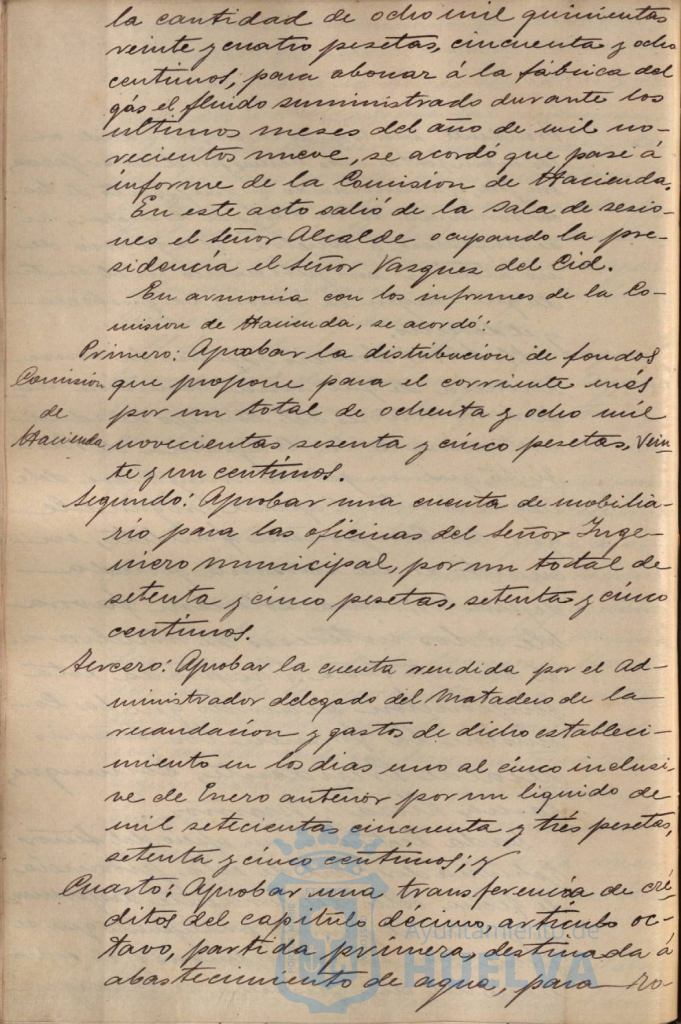 la cantidad de ocho mil quinientas
veinte y cuatro pesetas, cincuenta y ocho
centimos, para abonar á la fábrica del
gás el fluido suministrado durante los
ultimos meses del año de mil no-
vecientos nueve, se acordó que pase á
informe de la Comision de Hacienda.
En este acto salió de la sala de sesio-
nes el Señor Alcalde ocupando la pre-
sidencia el Señor Vazquez del Cid.
En armonia con los informes de la Co-
mision de Hacienda, se acordó:
Primero: Aprobar la distribucion de fondos
Comision que propone para el corriente més
de por un total de ochenta y ocho mil
Hacienda novecientas sesenta y cinco pesetas, vein-
te y un centimos.
Segundo: Aprobar una cuenta de mobilia-
rio para las oficinas del Señor Inge-
niero municipal, por un total de
setenta y cinco pesetas, setenta y cinco
centimos.
Tercero: Aprobar la cuenta rendida por el Ad-
ministrador delegado del Matadero de la
recaudacion y gastos de dicho estableci-
miento en los dias uno al cinco inclusi-
ve de Enero anterior por un liquido de
mil setecientas cincuenta y trés pesetas,
setenta y cinco centimos; y
Cuarto: Aprobar una transferencia de cré-
ditos del capitulo decimo, articulo oc-
tavo, partida primera, destinada á
abastecimiento de agua, para ro-
Ayuntamiento de
HUELVA